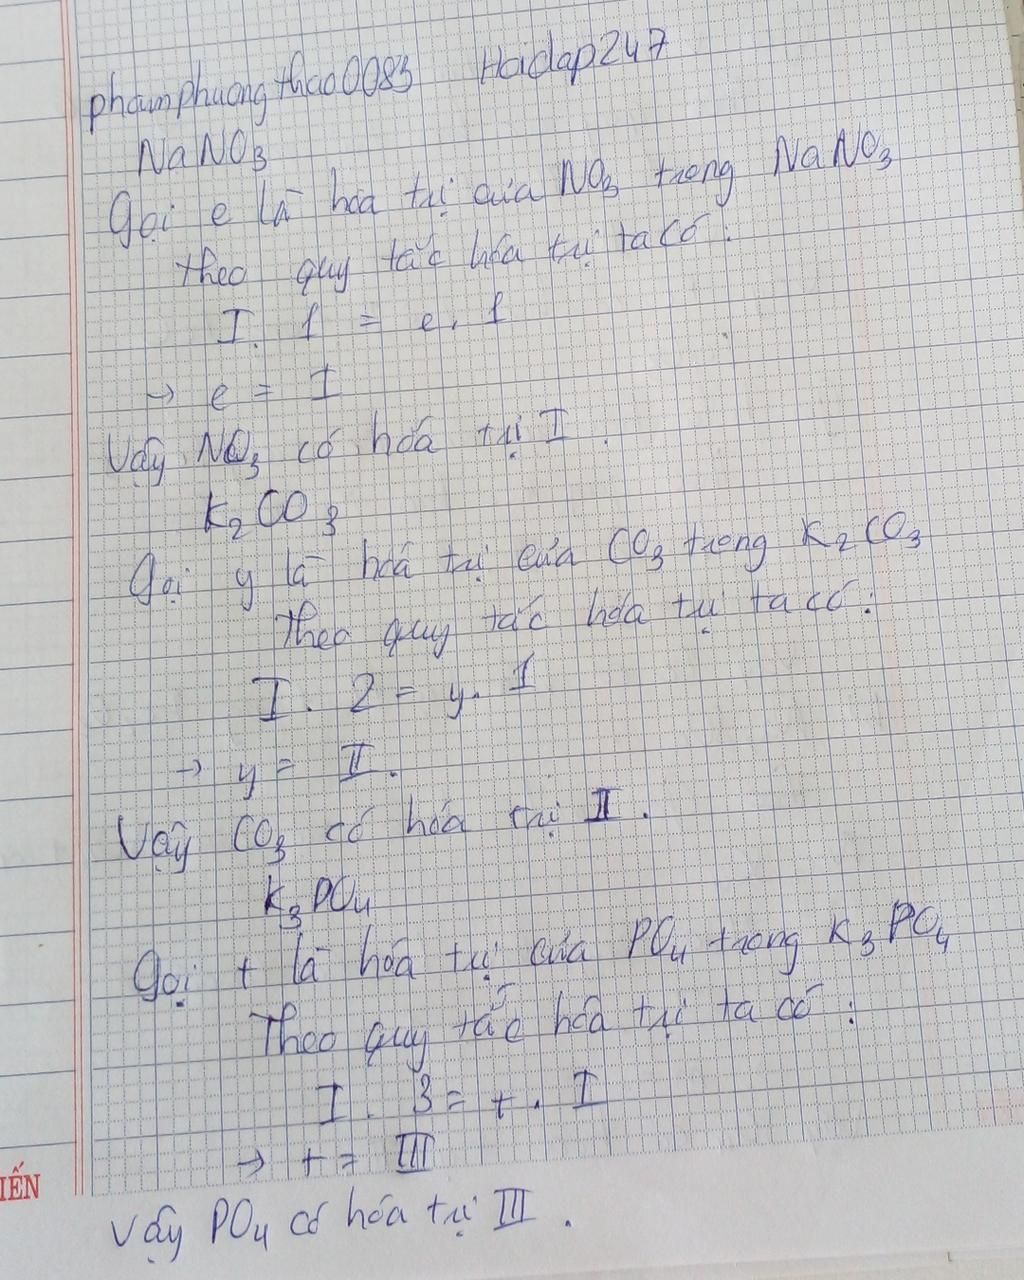 phamphuongthao0083 Hoidap247
NaNO3
Gọi e là hóa trị của NO3 trong NaNO3
Theo quy tắc hóa trị ta có:
I. 1 = e. 1
→ e = I
Vậy NO3 có hóa trị I.
K2CO3
Gọi y là hoá trị của CO3 trong K2CO3
Theo quy tắc hóa trị ta có:
I. 2 = y. 1
→ y = II.
Vậy CO3 có hóa trị II.
K3PO4
Gọi t là hóa trị của PO4 trong K3PO4
Theo quy tắc hóa trị ta có:
I. 3 = t. I
→ t = III
IẾN
Vậy PO4 có hóa trị III.